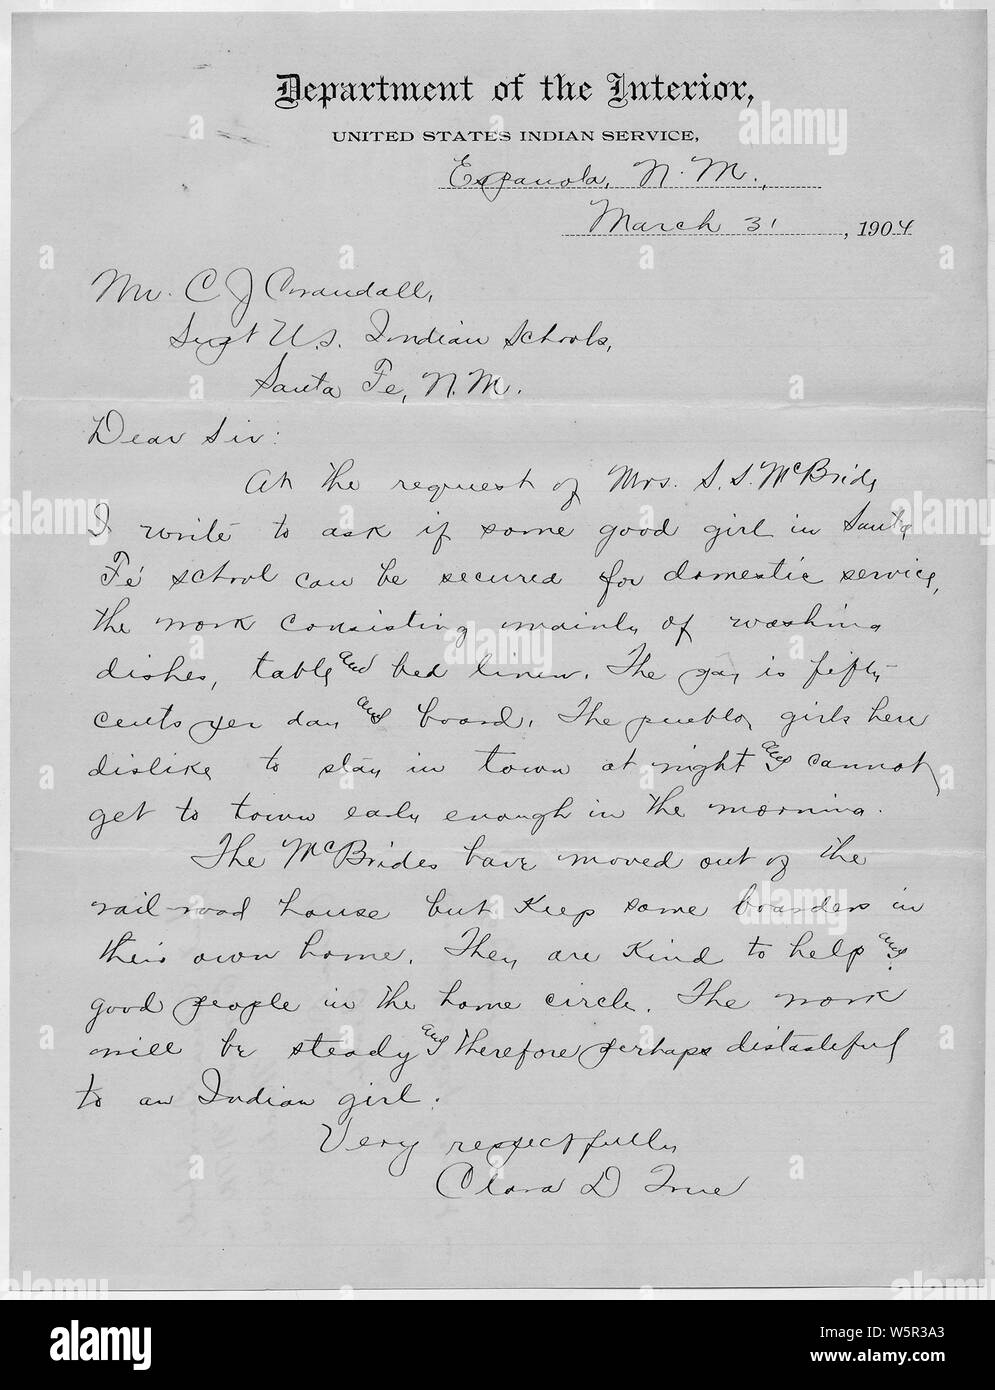 Department of the Interior,
UNITED STATES INDIAN SERVICE,
Espanola, N. M.,
March 31, 1904
Mr. C J Crandall,
Supt U.S. Indian Schools,
Santa Fe, N.M.
Dear Sir:
At the request of Mrs. S. S. McBride
I write to ask if some good girl in Santa
Fé school can be secured for domestic service,
the work consisting mainly of washing
dishes, table and bed linen. The pay is fifty
cents per day and board. The pueblo girls here
dislike to stay in town at night and cannot
get to town early enough in the morning.
The McBrides have moved out of the
rail-road house but keep some boarders in
their own home. They are kind to help and
good people in the home circle. The work
will be steady and therefore perhaps distasteful
to an Indian girl.
Very respectfully
Clara D True
alamy
alamy
Image ID: W5R3A3
www.alamy.com